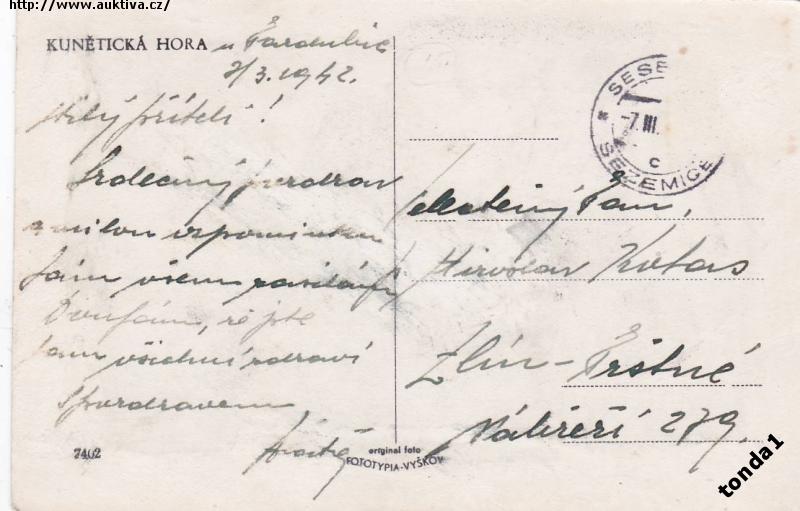 http://www.auktiva.cz/
KUNĚTICKÁ HORA u Pardubic
7/3.1942.
Milý příteli!
Srdečný pozdrav
a milou vzpomínku
Vám všem zasílám
Doufám, že jste
tam všichni zdraví
S pozdravem
7402
original foto
FOTOTYPIA-VYŠKOV
SEZEMICE
-7.III.
C
Velectěný Pan,
Miroslav Kotas
Zlín-Prštné
Nábřeží 279.
tonda1